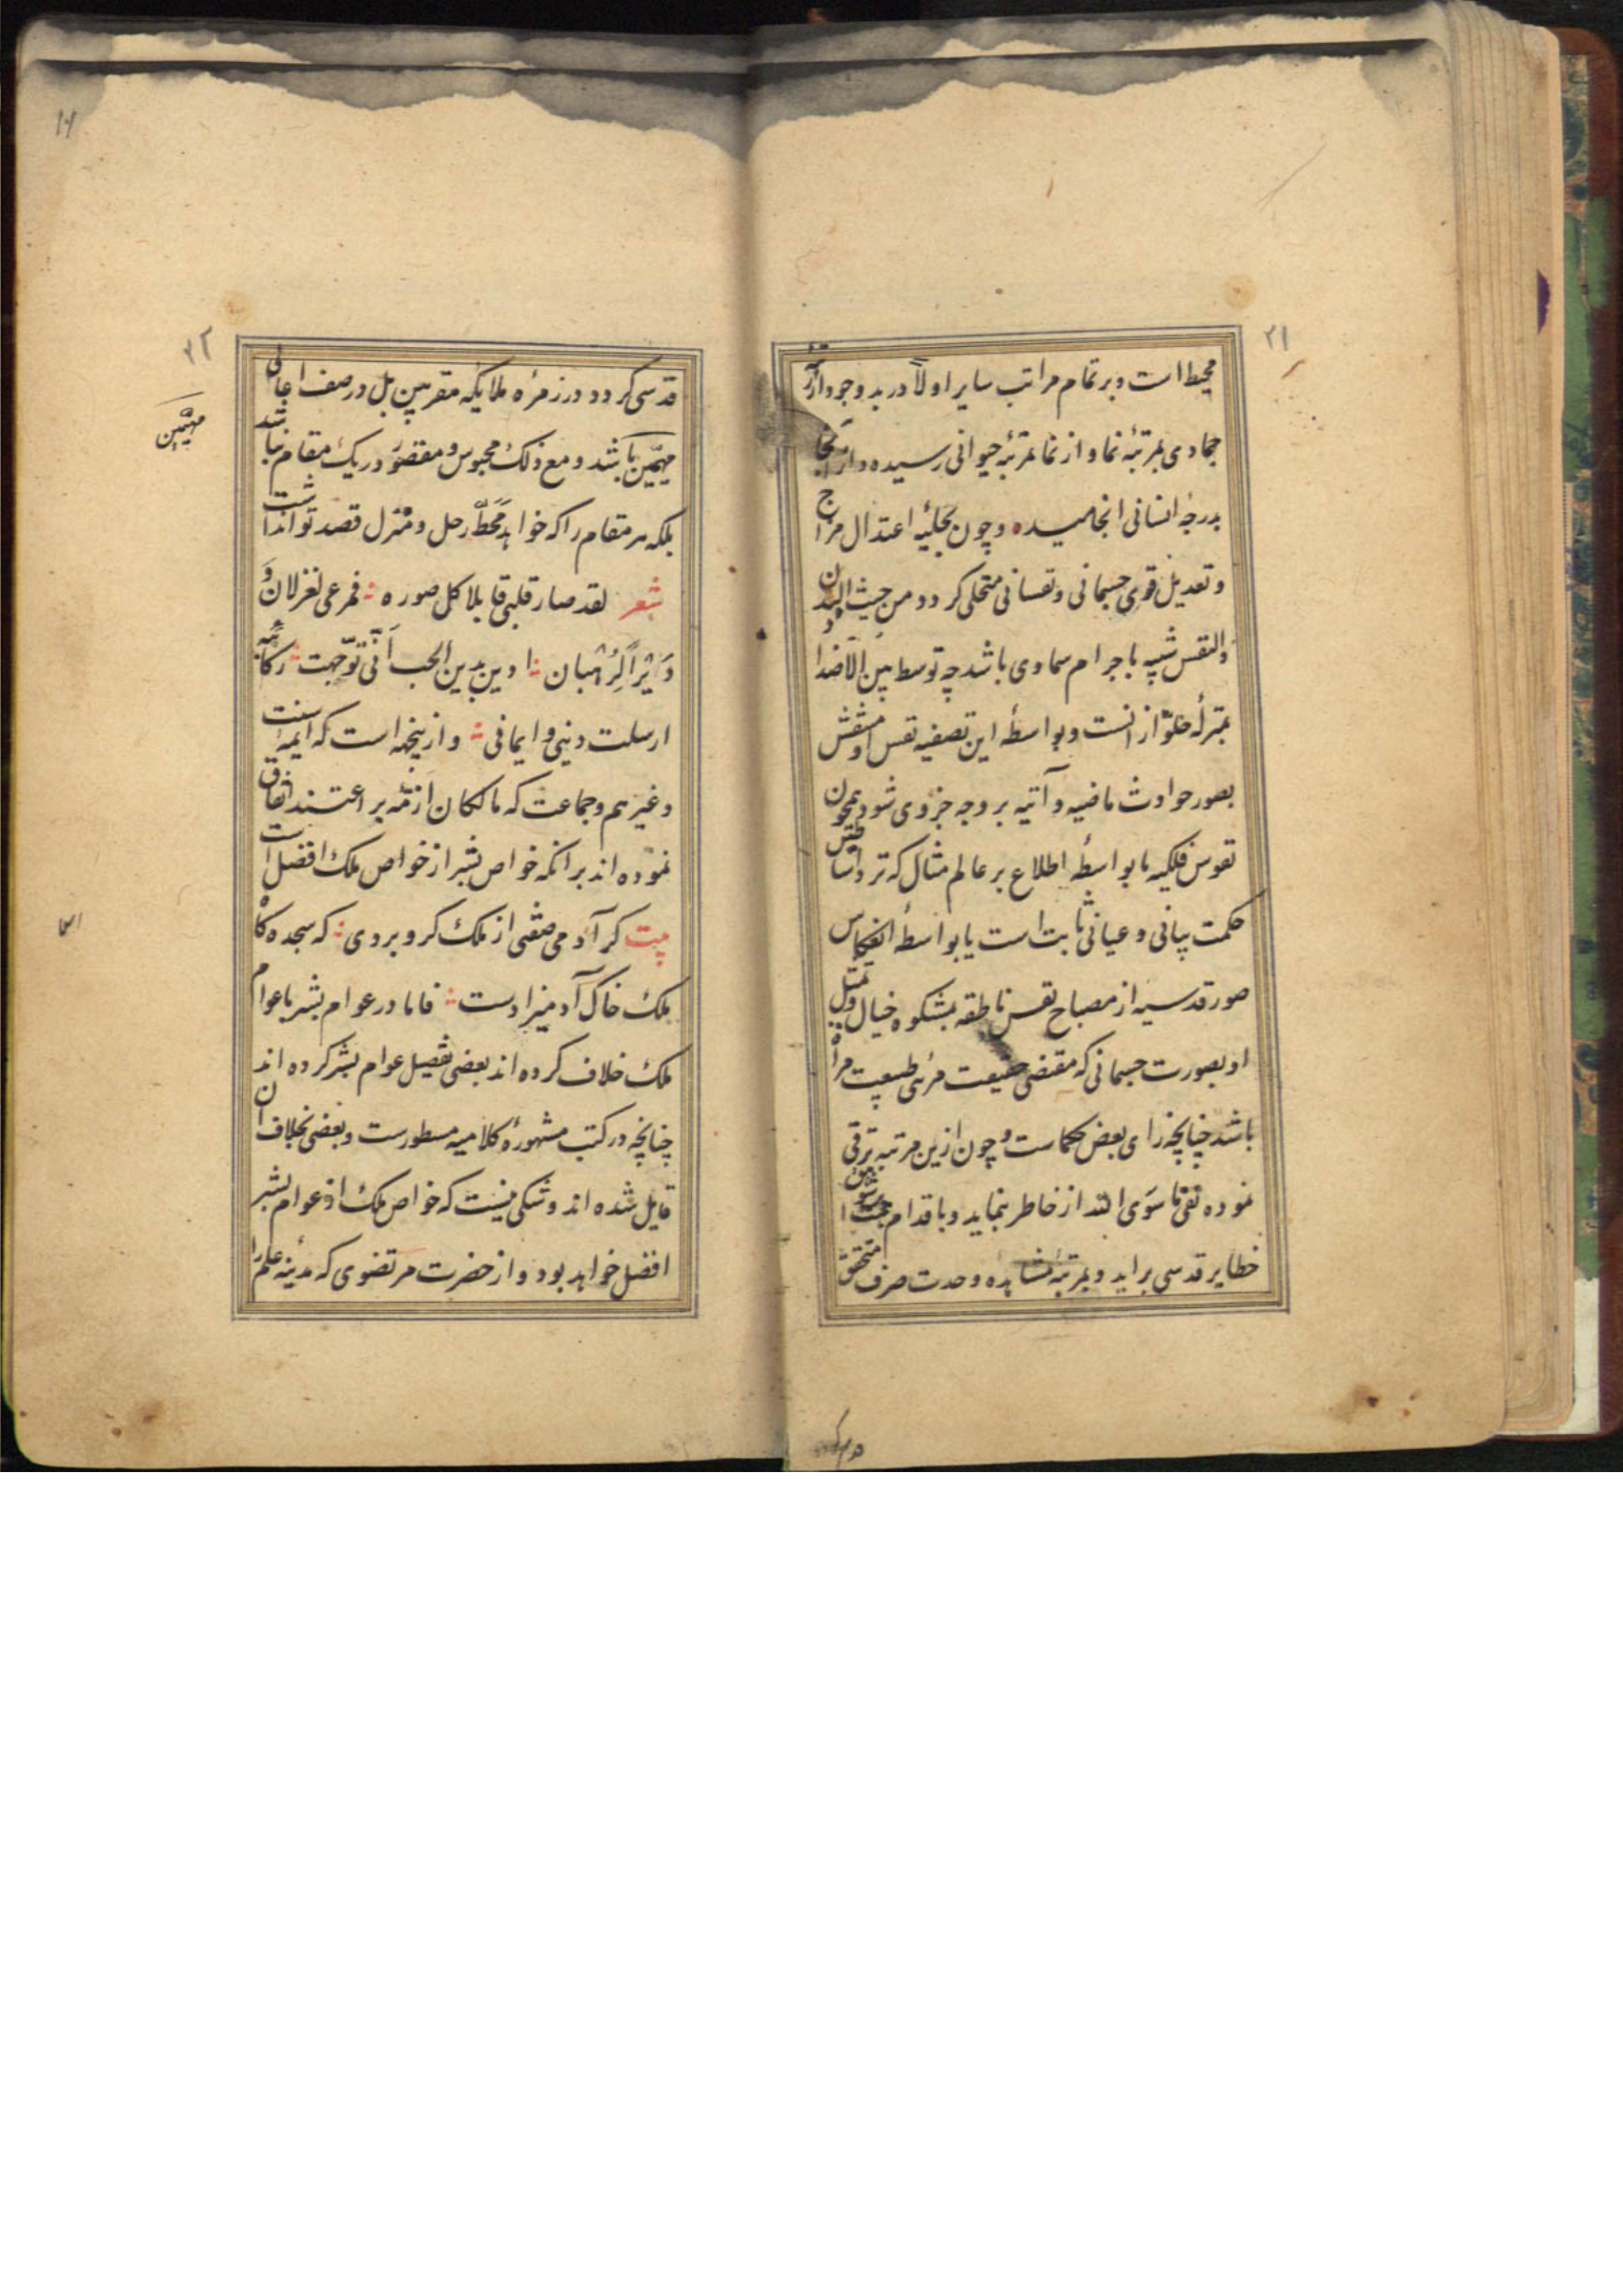 ٢١
محیط است و بر تمام مراتب سایر اولاً در بدو وجود از مرتبهٔ
جمادی بمرتبهٔ نما و از نما بمرتبهٔ حیوانی رسیده و از آنجا
بدرجهٔ انسانی انجامیده و چون بحلیهٔ اعتدال مزاج
و تعدیل قوی جسمانی و نفسانی متحلی کردد من حیث البدن
والنفس شبیه باجرام سماوی باشد چه توسط بین الاضداد
بمنزلهٔ خلوّ از آنست و بواسطهٔ این تصفیه نفس او منتقش
بصور حوادث ماضیه و آتیه بر وجه جزوی شود همچون
نفوس فلکیه یا بواسطهٔ اطلاع بر عالم مثال که نزد اساطین
حکمت بیانی و عیانی ثابت است یا بواسطهٔ انعکاس
صور قدسیه از مصباح نفس ناطقه بمشکوه خیال و تمثل
او بصورت جسمانی که مقتضی حقیقت مرئی طبیعت مرآة
باشد چنانچه رای بعض حکماست و چون ازین مرتبه ترقی
نموده نفی ما سوی الله از خاطر بنماید و باقدام
خطایر قدسی براید و بمرتبهٔ مشاهده وحدت صرف متحقق
١٦
٢٢
قدسی کردد در زمرهٔ ملایکه مقربین بل در صف اعالی
مهیّمین باشد و مع ذلک محبوس و مقصور در یک مقام نباشد
مهیّمین
بلکه هر مقام را که خواهد محطّ رحل و منزل قصد تواند داشت
شعر لقد صار قلبی قابلا کل صوره فمرعی لغزلان و
دیراً لرهبان ادین بدین الحب انّی توجّهت رکائبه
ارسلت دینی و ایمانی و ازینجهه است که ایمهٔ سنت
و غیرهم و جماعت که مالکان ازمّه براعتند اتفاق
نموده اند برانکه خواص بشر از خواص ملک افضل است
بیت کر آدمی صفتی از ملک کرو بردی که سجده کاه
ملک خاک آدمیزادست فاما در عوام بشر با عوام
ملک خلاف کرده اند بعضی تفضیل عوام بشر کرده اند
چنانچه در کتب مشهورهٔ کلامیه مسطورست و بعضی بخلاف ان
قایل شده اند و شکی نیست که خواص ملک از عوام بشر
افضل خواهد بود و از حضرت مرتضوی که مدینه علم را